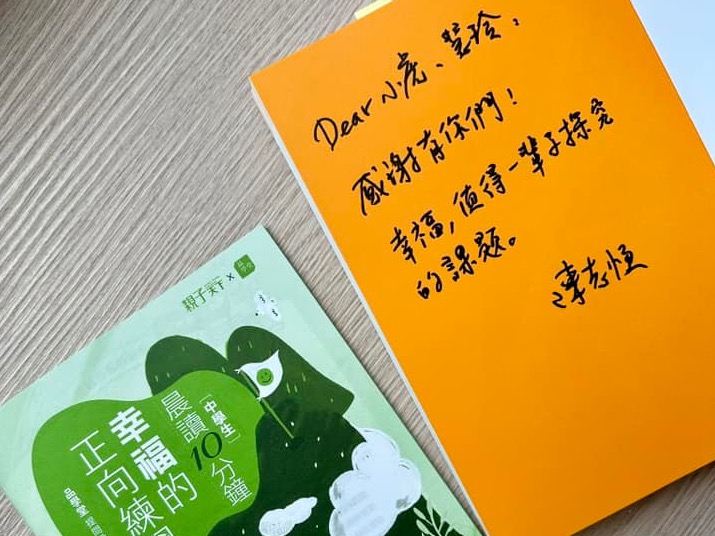 Dear 小虎、慧玲：
感謝有你們！
幸福，值得一輩子探究
的課題。
陳志恒
親子天下 x 品學堂
[中學生]
晨讀10分鐘
幸福的
正向練習
品學堂